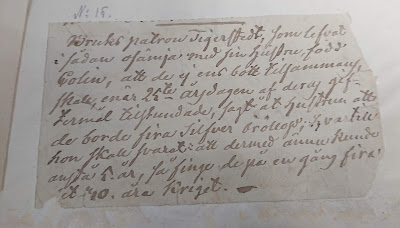 N: 15.
Bruks patron Tigerstedt, som lefvat
i sådan osämja med sin hustru, född
Colin, att de ej ens bott tillsammans,
skall, enär 25te årsdagen af deras gif-
termål tillstundade, sagt åt hustrun att
de borde fira silfver bröllop; hvartill
hon skall svarat: att dermed ännu kunde
anstå 5. år, så finge de på en gång fira
ett 30. åra kriget.